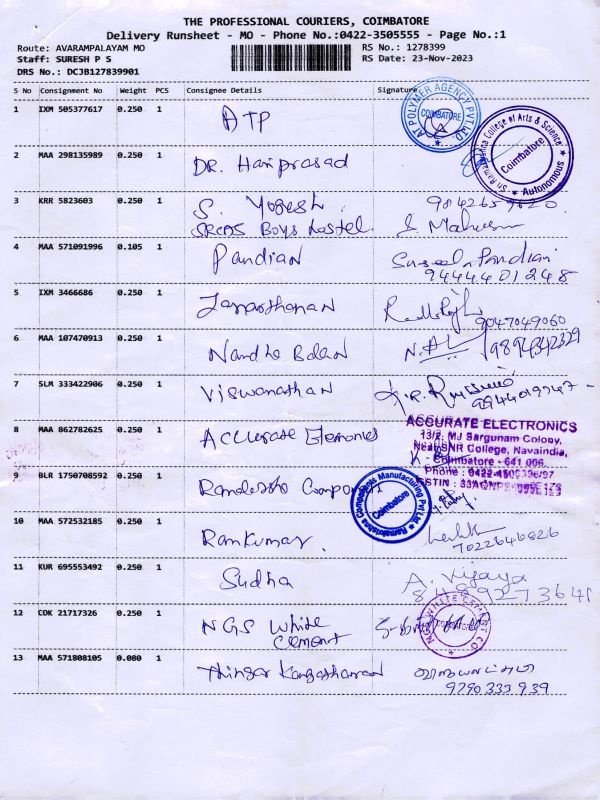 THE PROFESSIONAL COURIERS, COIMBATORE
Delivery Runsheet - MO - Phone No.:0422-3505555 - Page No.:1
Route: AVARAMPALAYAM MO
RS No.: 1278399
Staff: SURESH P S
RS Date: 23-Nov-2023
DRS No.: DCJB127839901
S No Consignment No Weight PCS Consignee Details Signature
1 IXM 505377617 0.250 1 ATP
AT POLYMER AGENCY PVT LTD
COIMBATORE
Sri Ramakrishna College of Arts & Science
Coimbatore
Autonomous
2 MAA 298135989 0.250 1 DR. Hariprasad
3 KRR 5823603 0.250 1 S. Yogesh.
SRCAS Boys hostel.
4 MAA 571091996 0.105 1 Pandian Suseela Pandian
94444 01248
5 IXM 3466686 0.250 1
9047049060
6 MAA 107470913 0.250 1 9894342329
7 SLM 333422906 0.250 1 Viswanathan
8 MAA 862782625 0.250 1 Accurate Electronics
ACCURATE ELECTRONICS
13/2, MJ Sargunam Colony,
Near SNR College, Navaindia,
Coimbatore - 641 006.
9 BLR 1750708592 0.250 1
Ramakrishna Components Manufacturing Pvt Ltd
Coimbatore
10 MAA 572532185 0.250 1 Ramkumar.
7022646826
11 KUR 695553492 0.250 1 Sudha A. Vijaya
12 CDK 21717326 0.250 1 NGS White
Cement
NGS WHITE CEMENT CO.
13 MAA 571808105 0.080 1
9290 333 939